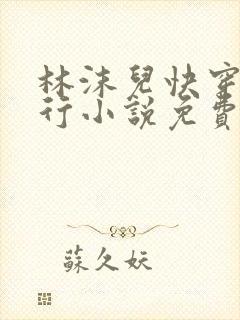 林沫兒快穿
行小說免費
蘇久妖